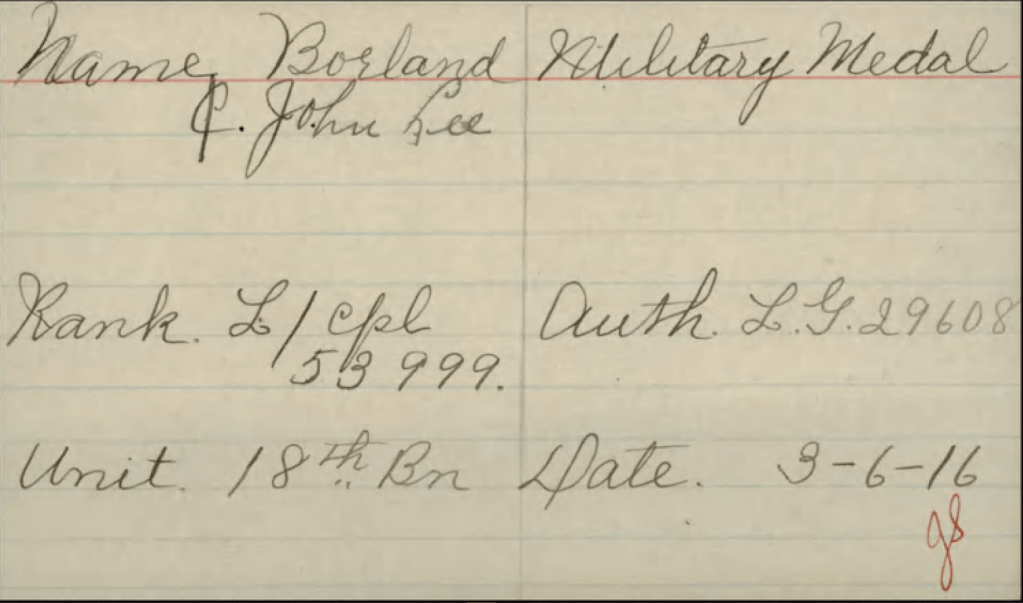 Name, Borland Military Medal
C. John Lee
Rank. L/cpl Auth. L.G. 29608
53999.
Unit. 18th Bn Date. 3-6-16